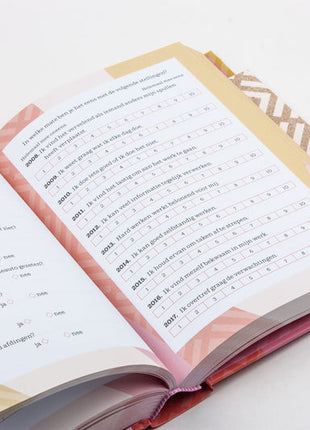 nee
nee
nee
ja
nee
afdingen?
ja
nee
In welke mate ben je het eens met de volgende stellingen?
Helemaal mee oneens
Helemaal mee eens
2008. Ik vind het vervelend als iemand anders mijn spullen
heeft verplaatst
1 2 3 4 5 6 7 8 9 10
2009. Ik weet graag wat ik elke dag doe
1 2 3 4 5 6 7 8 9 10
2010. Ik doe iets goed of ik doe het niet
1 2 3 4 5 6 7 8 9 10
2011. Ik vind het lastig om aan het werk te gaan
1 2 3 4 5 6 7 8 9 10
2012. Ik kan veel informatie tegelijk verwerken
1 2 3 4 5 6 7 8 9 10
2013. Hard werken werkt belonend voor mij
1 2 3 4 5 6 7 8 9 10
2014. Ik kan goed zelfstandig werken
1 2 3 4 5 6 7 8 9 10
2015. Ik houd ervan om taken af te strepen
1 2 3 4 5 6 7 8 9 10
2016. Ik vind mezelf bekwaam in mijn werk
1 2 3 4 5 6 7 8 9 10
2017. Ik overtref graag de verwachtingen
1 2 3 4 5 6 7 8 9 10